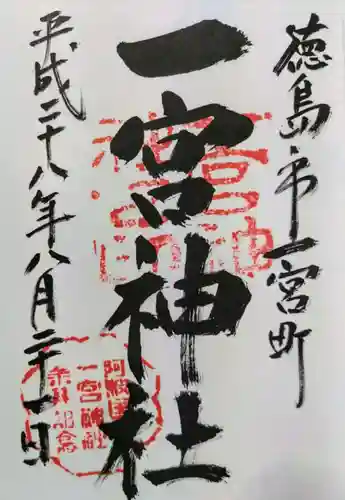 徳島市一宮町
一宮神社
平成二十八年八月二十一日
阿波國
一宮神社